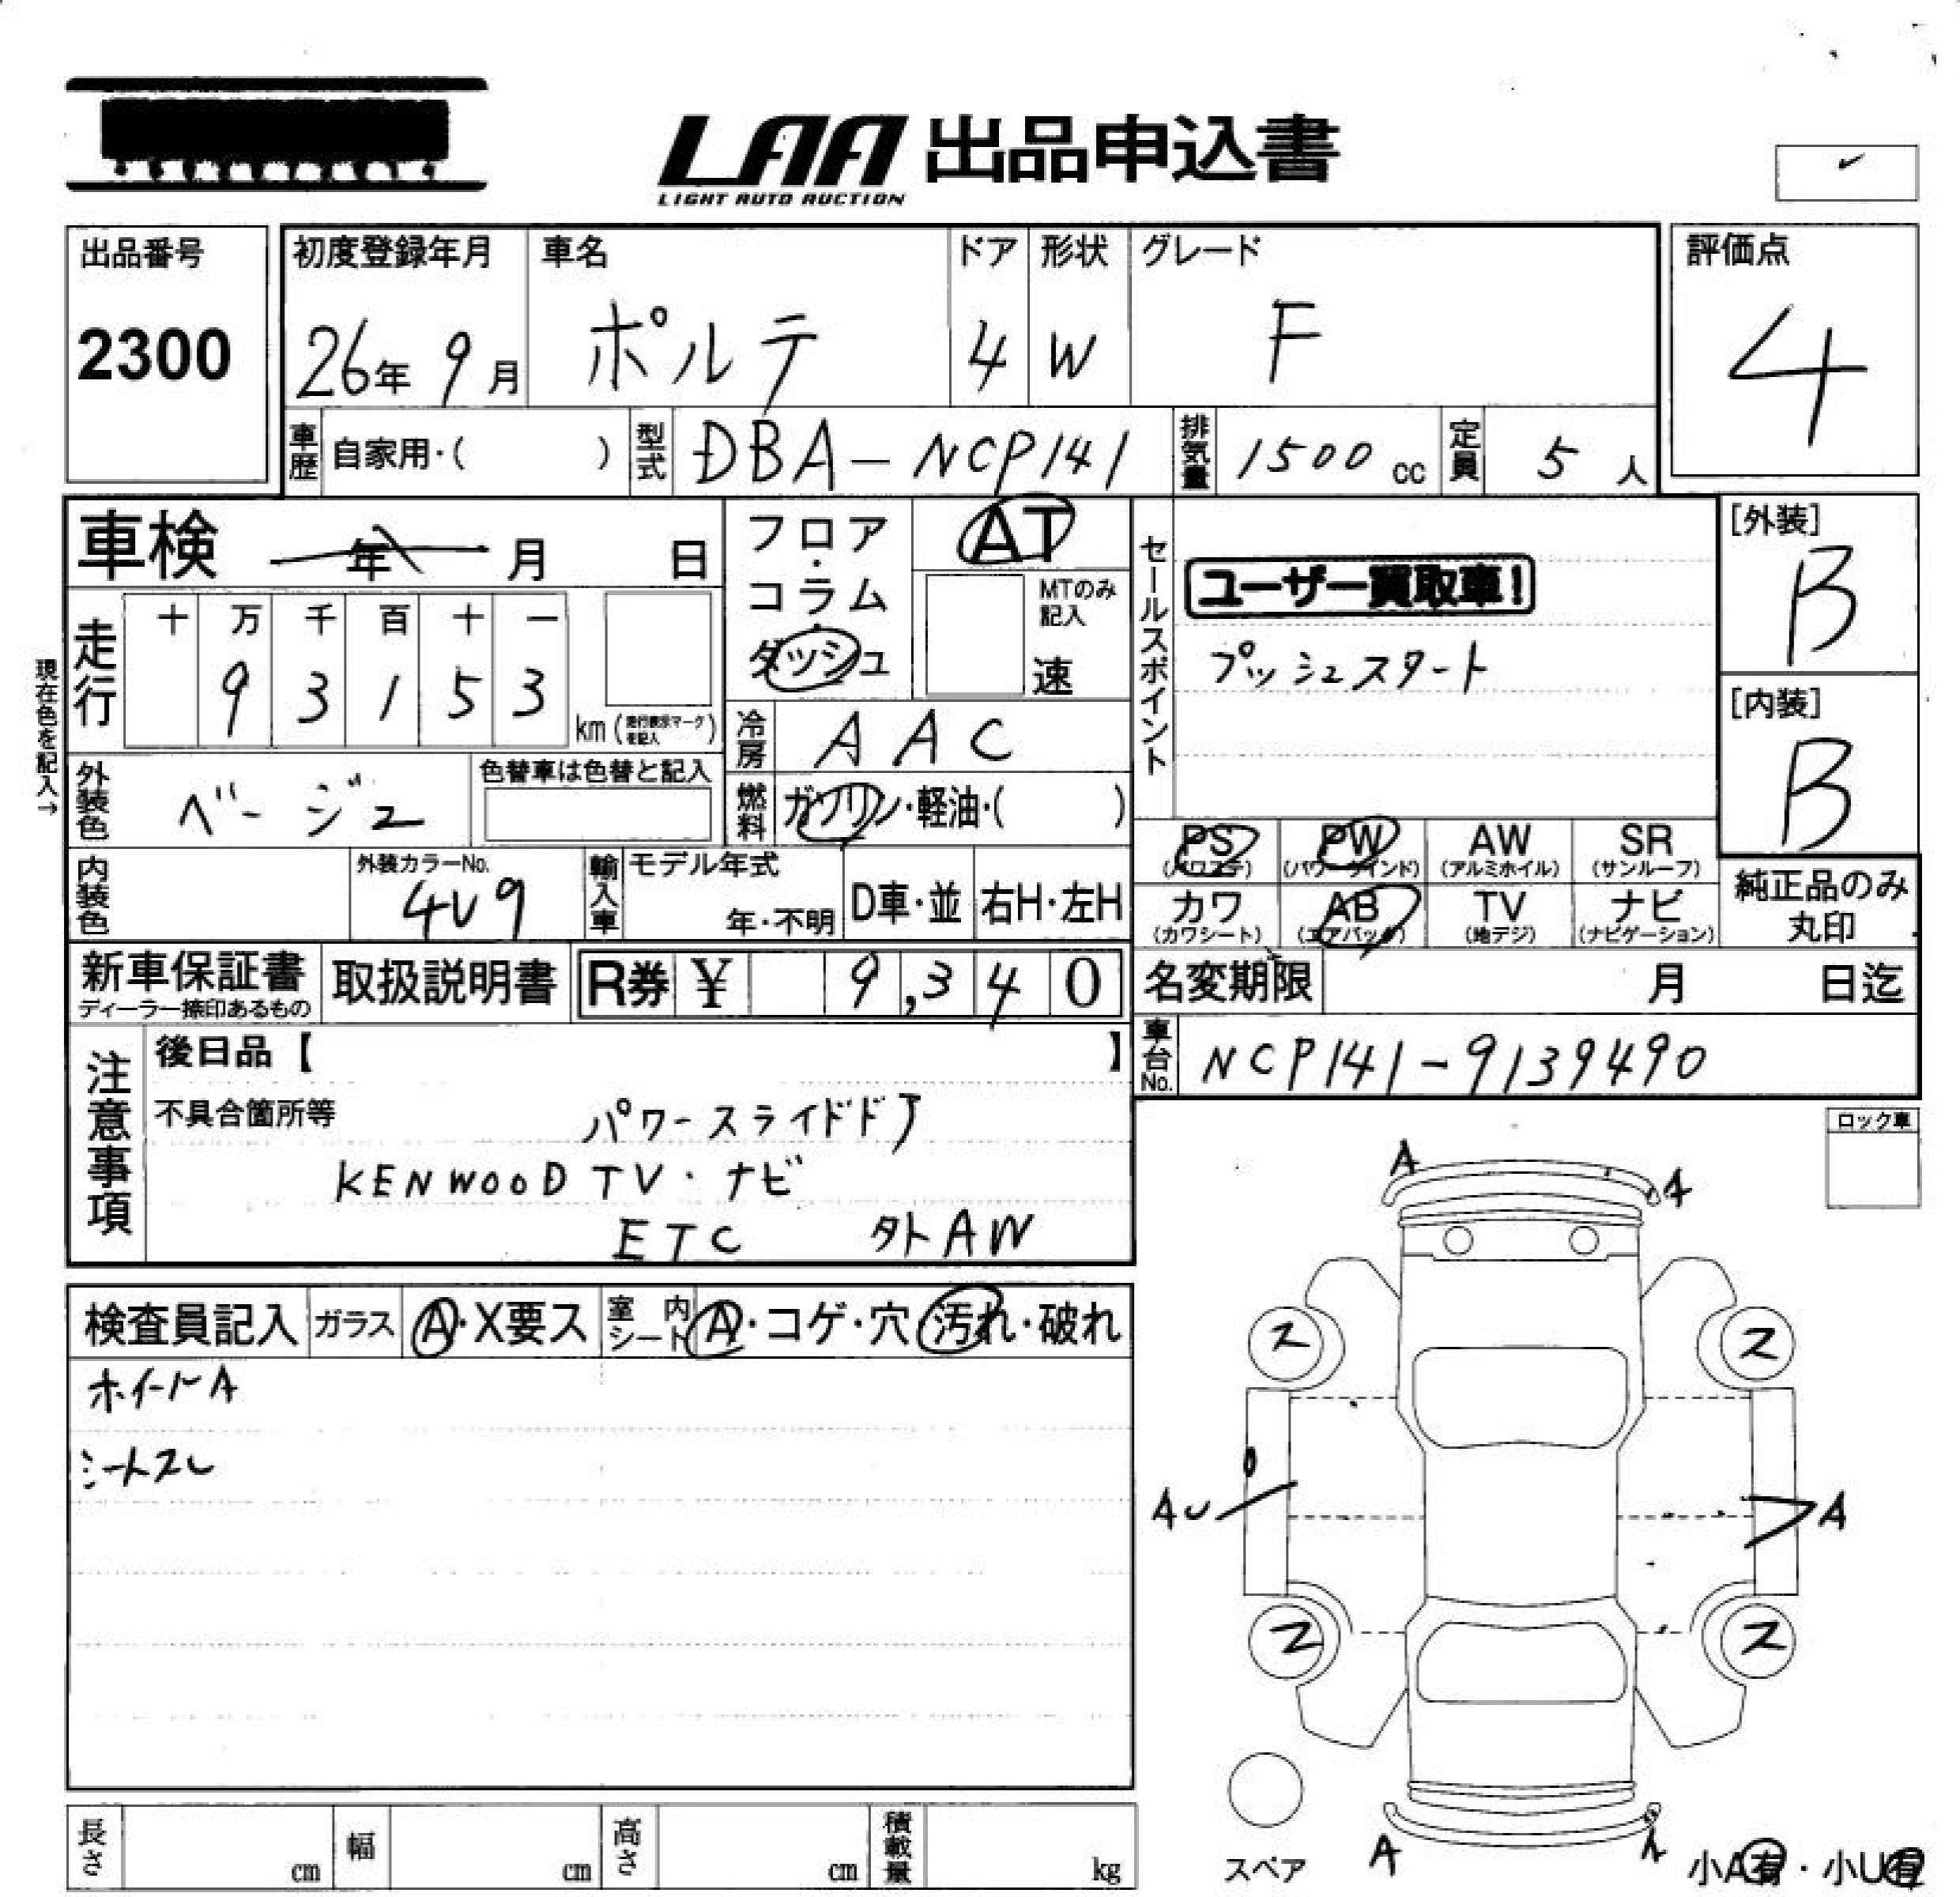 LAA 出品申込書
LIGHT AUTO AUCTION
出品番号
2300
初度登録年月
26年 9月
車名
ポルテ
ドア
4
形状
W
グレード
F
評価点
4
車歴 自家用・( )
型式 DBA-NCP141
排気量 1500 cc
定員 5 人
車検 年 月 日
フロア・コラム・ダッシュ
AT
MTのみ記入
速
セールスポイント
ユーザー買取車!
プッシュスタート
[外装]
B
[内装]
B
現在色を記入→
走行
十 万 千 百 十 一
9 3 1 5 3
km (走行表示マークを記入)
冷房 AAC
燃料 ガソリン・軽油・( )
外装色 ベージュ
色替車は色替と記入
内装色
外装カラーNo.
4V9
輸入車
モデル年式
年・不明
D車・並
右H・左H
PS (パワステ)
PW (パワーウインド)
AW (アルミホイル)
SR (サンルーフ)
カワ (カワシート)
AB (エアバッグ)
TV (地デジ)
ナビ (ナビゲーション)
純正品のみ
丸印
新車保証書
ディーラー捺印あるもの
取扱説明書
R券 ¥ 9,340
名変期限 月 日迄
車台No. NCP141-9139490
注意事項
後日品【 】
不具合箇所等
パワースライドドア
KENWOOD TV・ナビ
ETC 外AW
ロック車
検査員記入
ガラス A・X要ス
室内シート A・コゲ・穴・汚れ・破れ
ホイールA
シートスレ
A
A
ス
ス
AU
A
ス
ス
A
スペア
小A有・小U有
長さ cm
幅 cm
高さ cm
積載量 kg